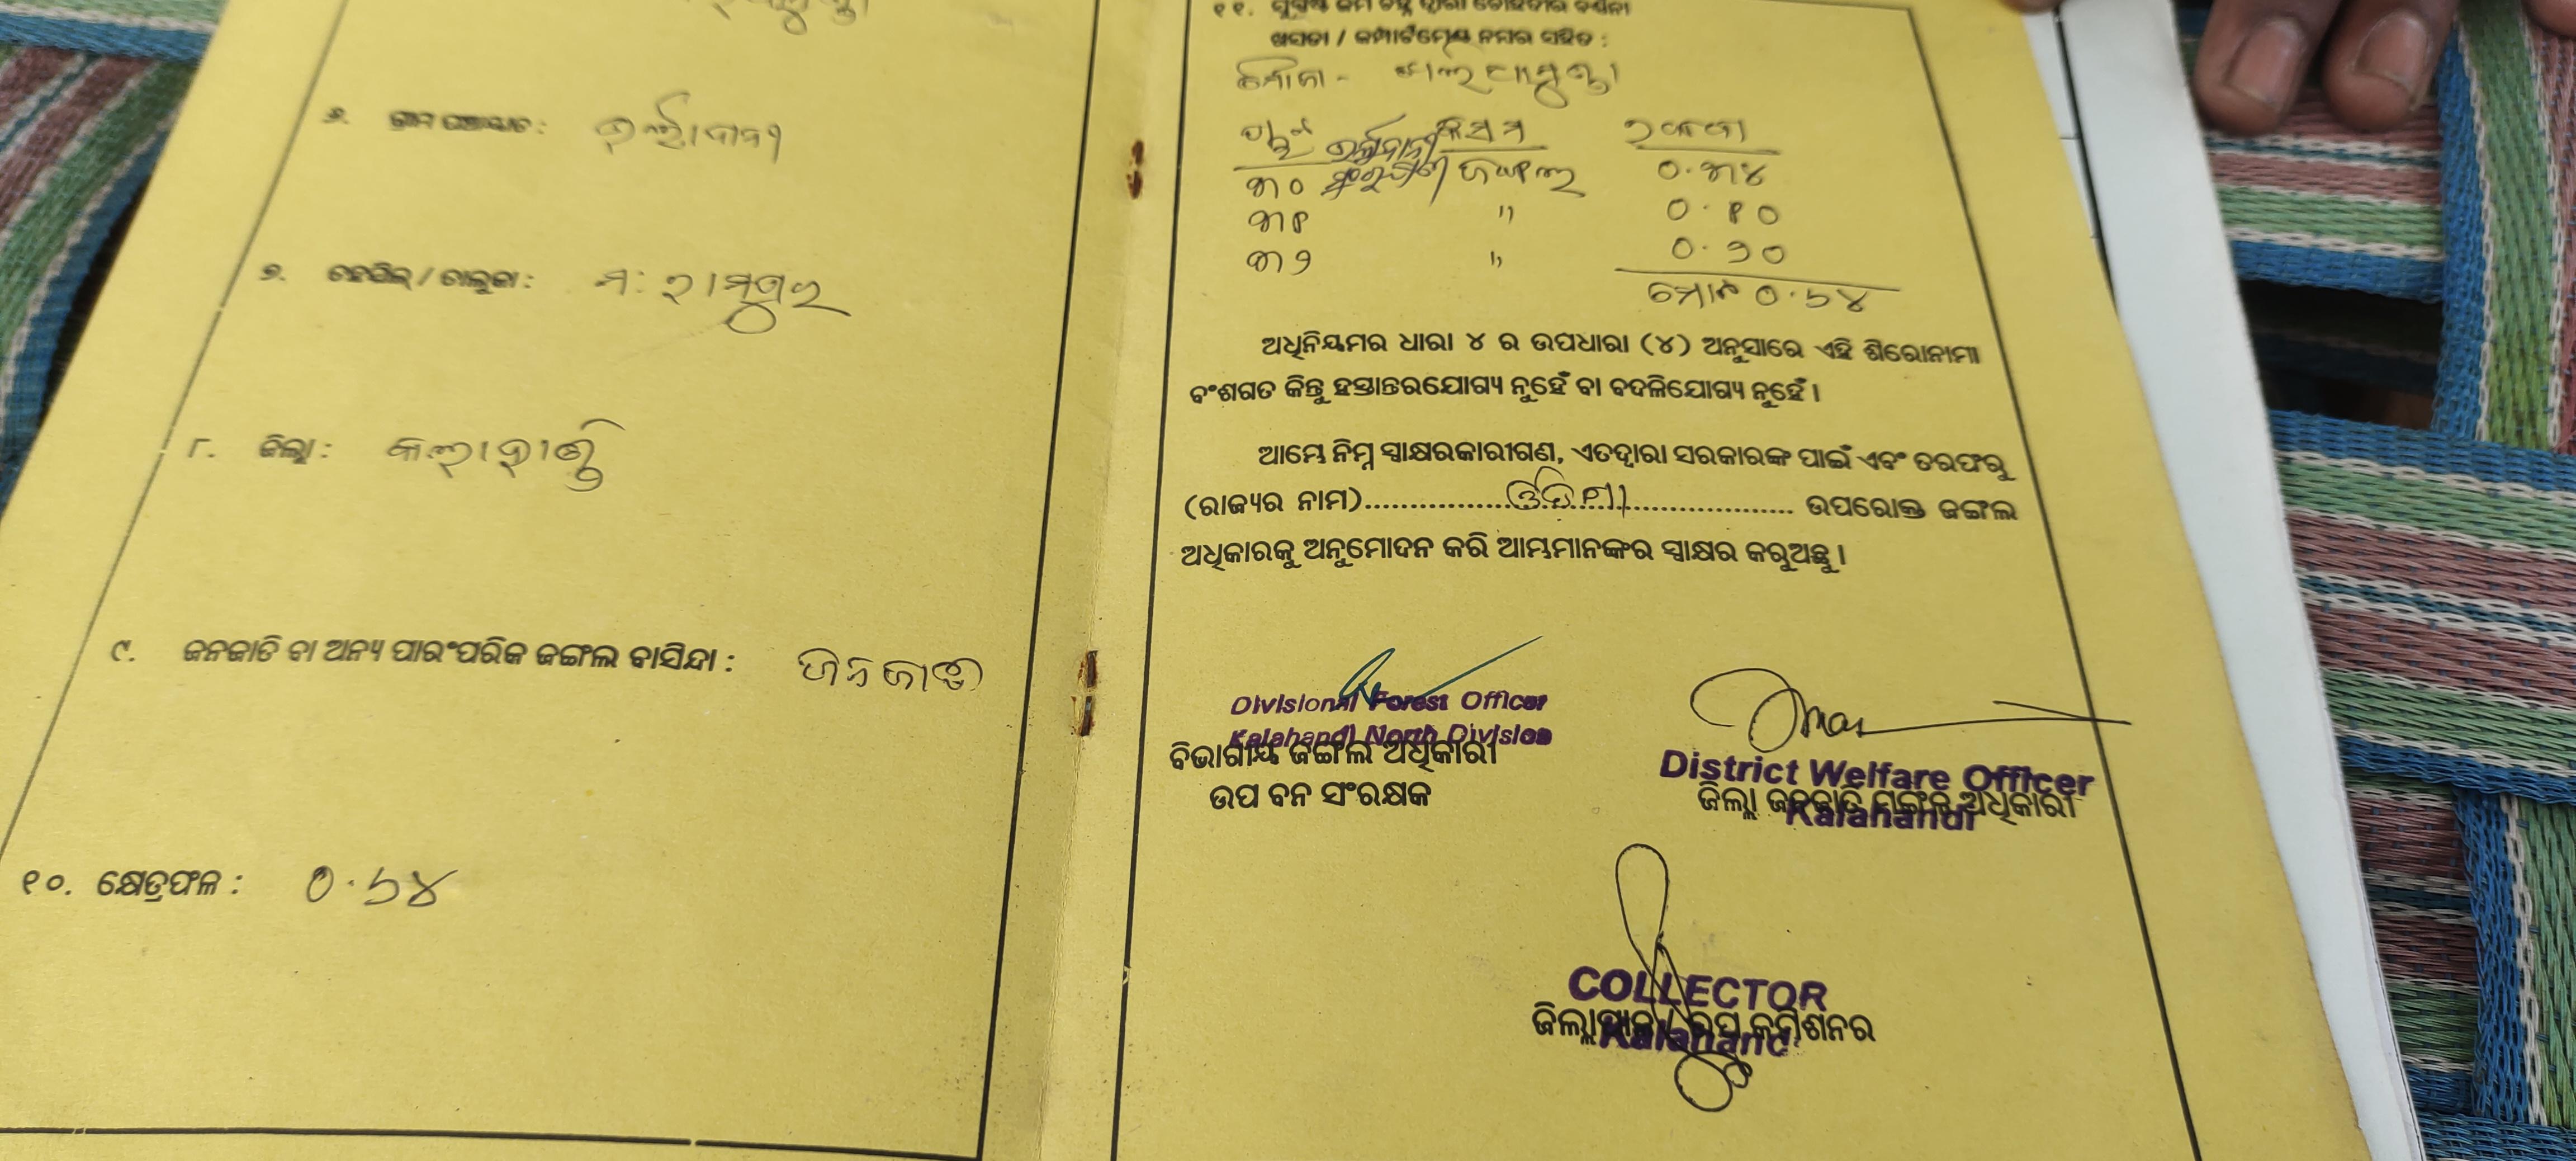 ୬. ଗ୍ରାମ ପଞ୍ଚାୟତ :
୭. ତହସିଲ୍ / ତାଲୁକା : ମ: ରାମପୁର
୮. ଜିଲ୍ଲା : କଳାହାଣ୍ଡି
୯. ଜନଜାତି ବା ଅନ୍ୟ ପାରଂପରିକ ଜଙ୍ଗଲ ବାସିନ୍ଦା : ଜନଜାତି
୧୦. କ୍ଷେତ୍ରଫଳ : ୦.୬୪
୧୧.
ଖସଡା / କମ୍ପାର୍ଟମେଣ୍ଟ ନମ୍ବର ସହିତ :
ମୌଜା -
ପ୍ଲଟ କିସମ ରକବା
୩୦ ଜଙ୍ଗଲ ୦.୩୪
୩୧ " ୦.୧୦
୩୨ " ୦.୨୦
ମୋଟ ୦.୬୪
ଅଧିନିୟମର ଧାରା ୪ ର ଉପଧାରା (୪) ଅନୁସାରେ ଏହି ଶିରୋନାମା
ବଂଶଗତ କିନ୍ତୁ ହସ୍ତାନ୍ତରଯୋଗ୍ୟ ନୁହେଁ ବା ବଦଳିଯୋଗ୍ୟ ନୁହେଁ ।
ଆମ୍ଭେ ନିମ୍ନ ସ୍ୱାକ୍ଷରକାରୀଗଣ, ଏତଦ୍ଦ୍ୱାରା ସରକାରଙ୍କ ପାଇଁ ଏବଂ ତରଫରୁ
(ରାଜ୍ୟର ନାମ)..................ଓଡିଶା..................... ଉପରୋକ୍ତ ଜଙ୍ଗଲ
ଅଧିକାରକୁ ଅନୁମୋଦନ କରି ଆମ୍ଭମାନଙ୍କର ସ୍ୱାକ୍ଷର କରୁଅଛୁ ।
Divisional Forest Officer
Kalahandi North Division
ବିଭାଗୀୟ ଜଙ୍ଗଲ ଅଧିକାରୀ
ଉପ ବନ ସଂରକ୍ଷକ
District Welfare Officer
ଜିଲ୍ଲା ଜନଜାତି ମଙ୍ଗଳ ଅଧିକାରୀ
Kalahandi
COLLECTOR
ଜିଲ୍ଲାପାଳ / ଉପ କମିଶନର
Kalahandi